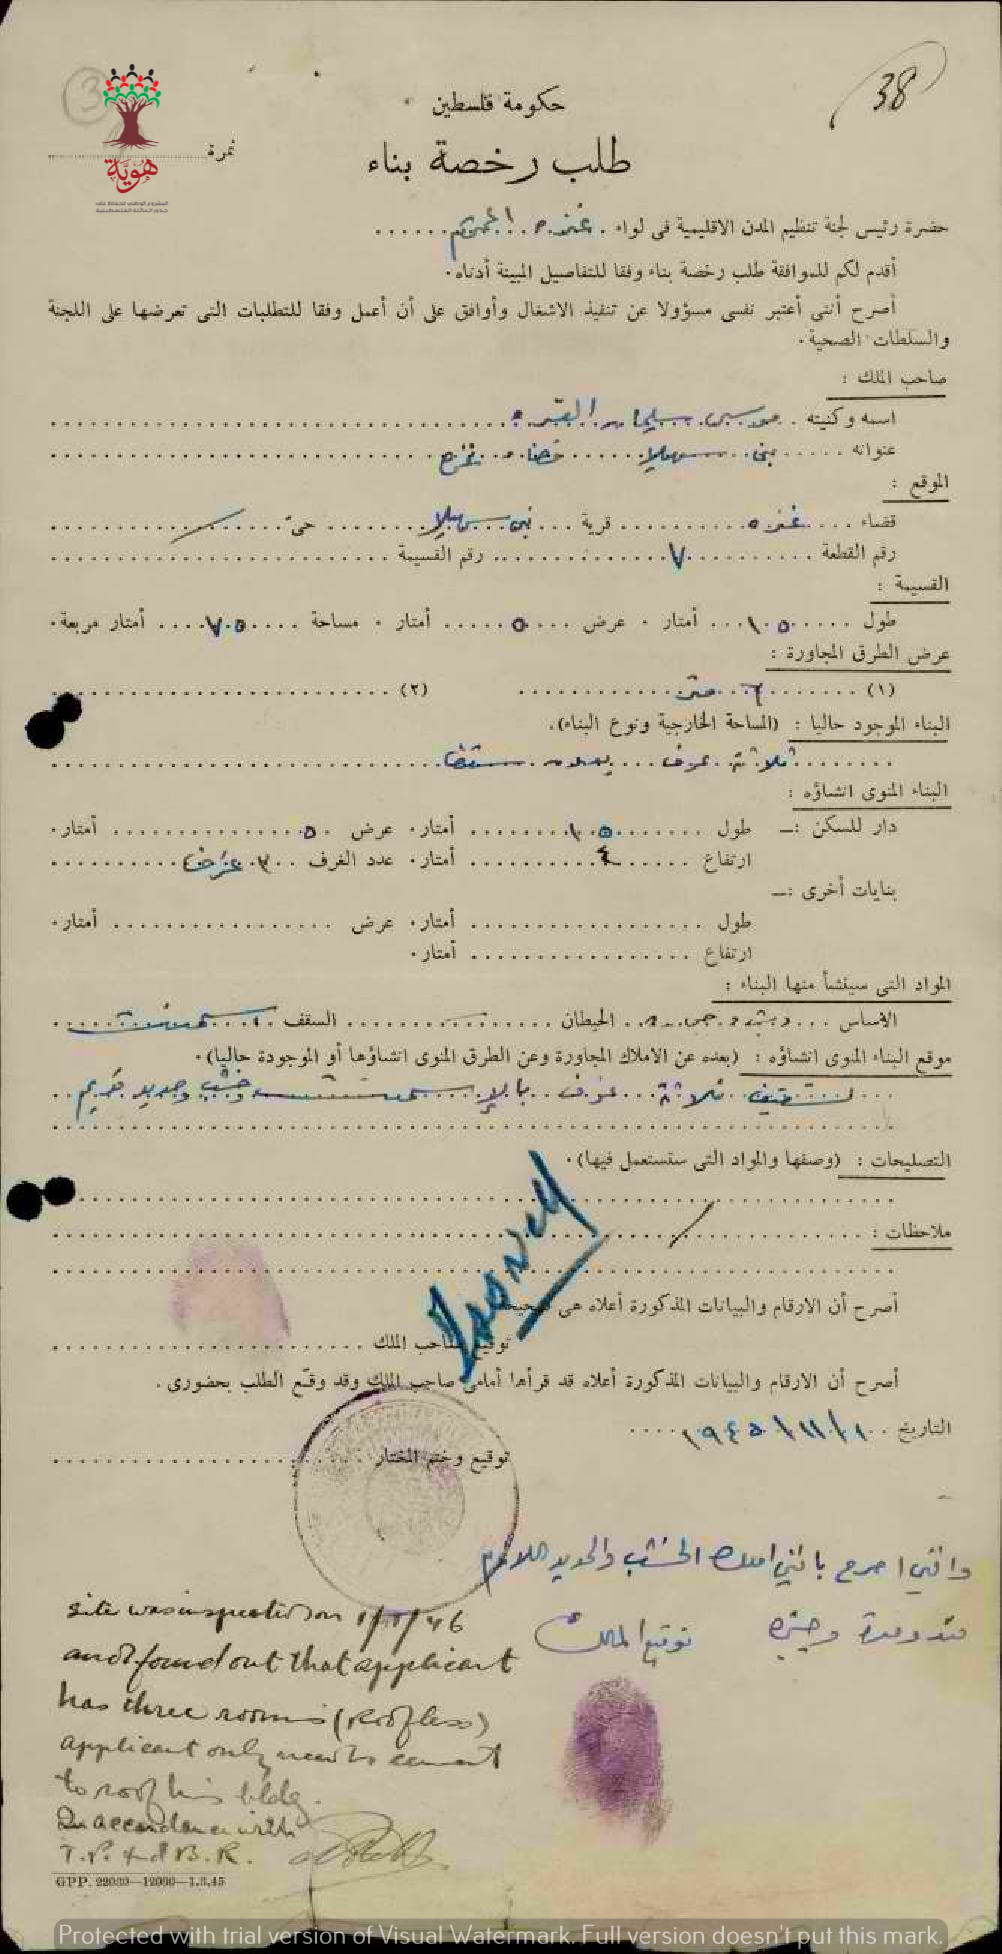 38
3
هوية
المشروع الوطني للحفاظ على
جذور العائلة الفلسطينية
حكومة فلسطين
نمرة
طلب رخصة بناء
حضرة رئيس لجنة تنظيم المدن الاقليمية فى لواء غزه المحترم
أقدم لكم للموافقة طلب رخصة بناء وفقا للتفاصيل المبينة أدناه.
أصرح أننى أعتبر نفسى مسؤولا عن تنفيذ الاشغال وأوافق على أن أعمل وفقا للتطلبات التى تعرضها على اللجنة
والسلطات الصحية.
صاحب الملك :
اسمه وكنيته موسى سليمان القره
عنوانه بني سهيلا قضاء غزه
الموقع :
قضاء غزه قرية بني سهيلا حىّ /
رقم القطعة ٧ رقم القسيمة
القسيمة :
طول ١٥ أمتار. عرض ٥ أمتار. مساحة ٧٥ أمتار مربعة.
عرض الطرق المجاورة :
(١) ٦ متر (٢)
البناء الموجود حاليا : (المساحة الخارجية ونوع البناء).
ثلاثة غرف بدون سقف
البناء المنوى انشاؤه :
دار للسكن :— طول ١٥ أمتار. عرض ٥ أمتار.
ارتفاع ٤ أمتار. عدد الغرف ٣ غرف
بنايات أخرى :—
طول أمتار. عرض أمتار.
ارتفاع أمتار.
المواد التى سينشأ منها البناء :
الاساس الحيطان السقف اسمنت
موقع البناء المنوى انشاؤه : (بعده عن الاملاك المجاورة وعن الطرق المنوى انشاؤها أو الموجودة حاليا).
لتسقيف ثلاثة غرف بالاسمنت خشب وحديد قديم
التصليحات : (وصفها والمواد التى ستستعمل فيها).
ملاحظات : /
أصرح أن الارقام والبيانات المذكورة أعلاه هى صحيحة
توقيع صاحب الملك
أصرح أن الارقام والبيانات المذكورة أعلاه قد قرأها أمامى صاحب الملك وقد وقّع الطلب بحضورى.
التاريخ ١/١١/١٩٤٥
توقيع وختم المختار
وانني اصرح بانني املك الخشب والحديد اللازم
توقيع المالك
site was inspected on 1/1/46
and found out that applicant
has three rooms (Roofless)
applicant only needs cement
to roof his bldg.
In accordance with
T.P. and B.R.
GPP. 22030—12000—1.3.45
Protected with trial version of Visual Watermark. Full version doesn't put this mark.